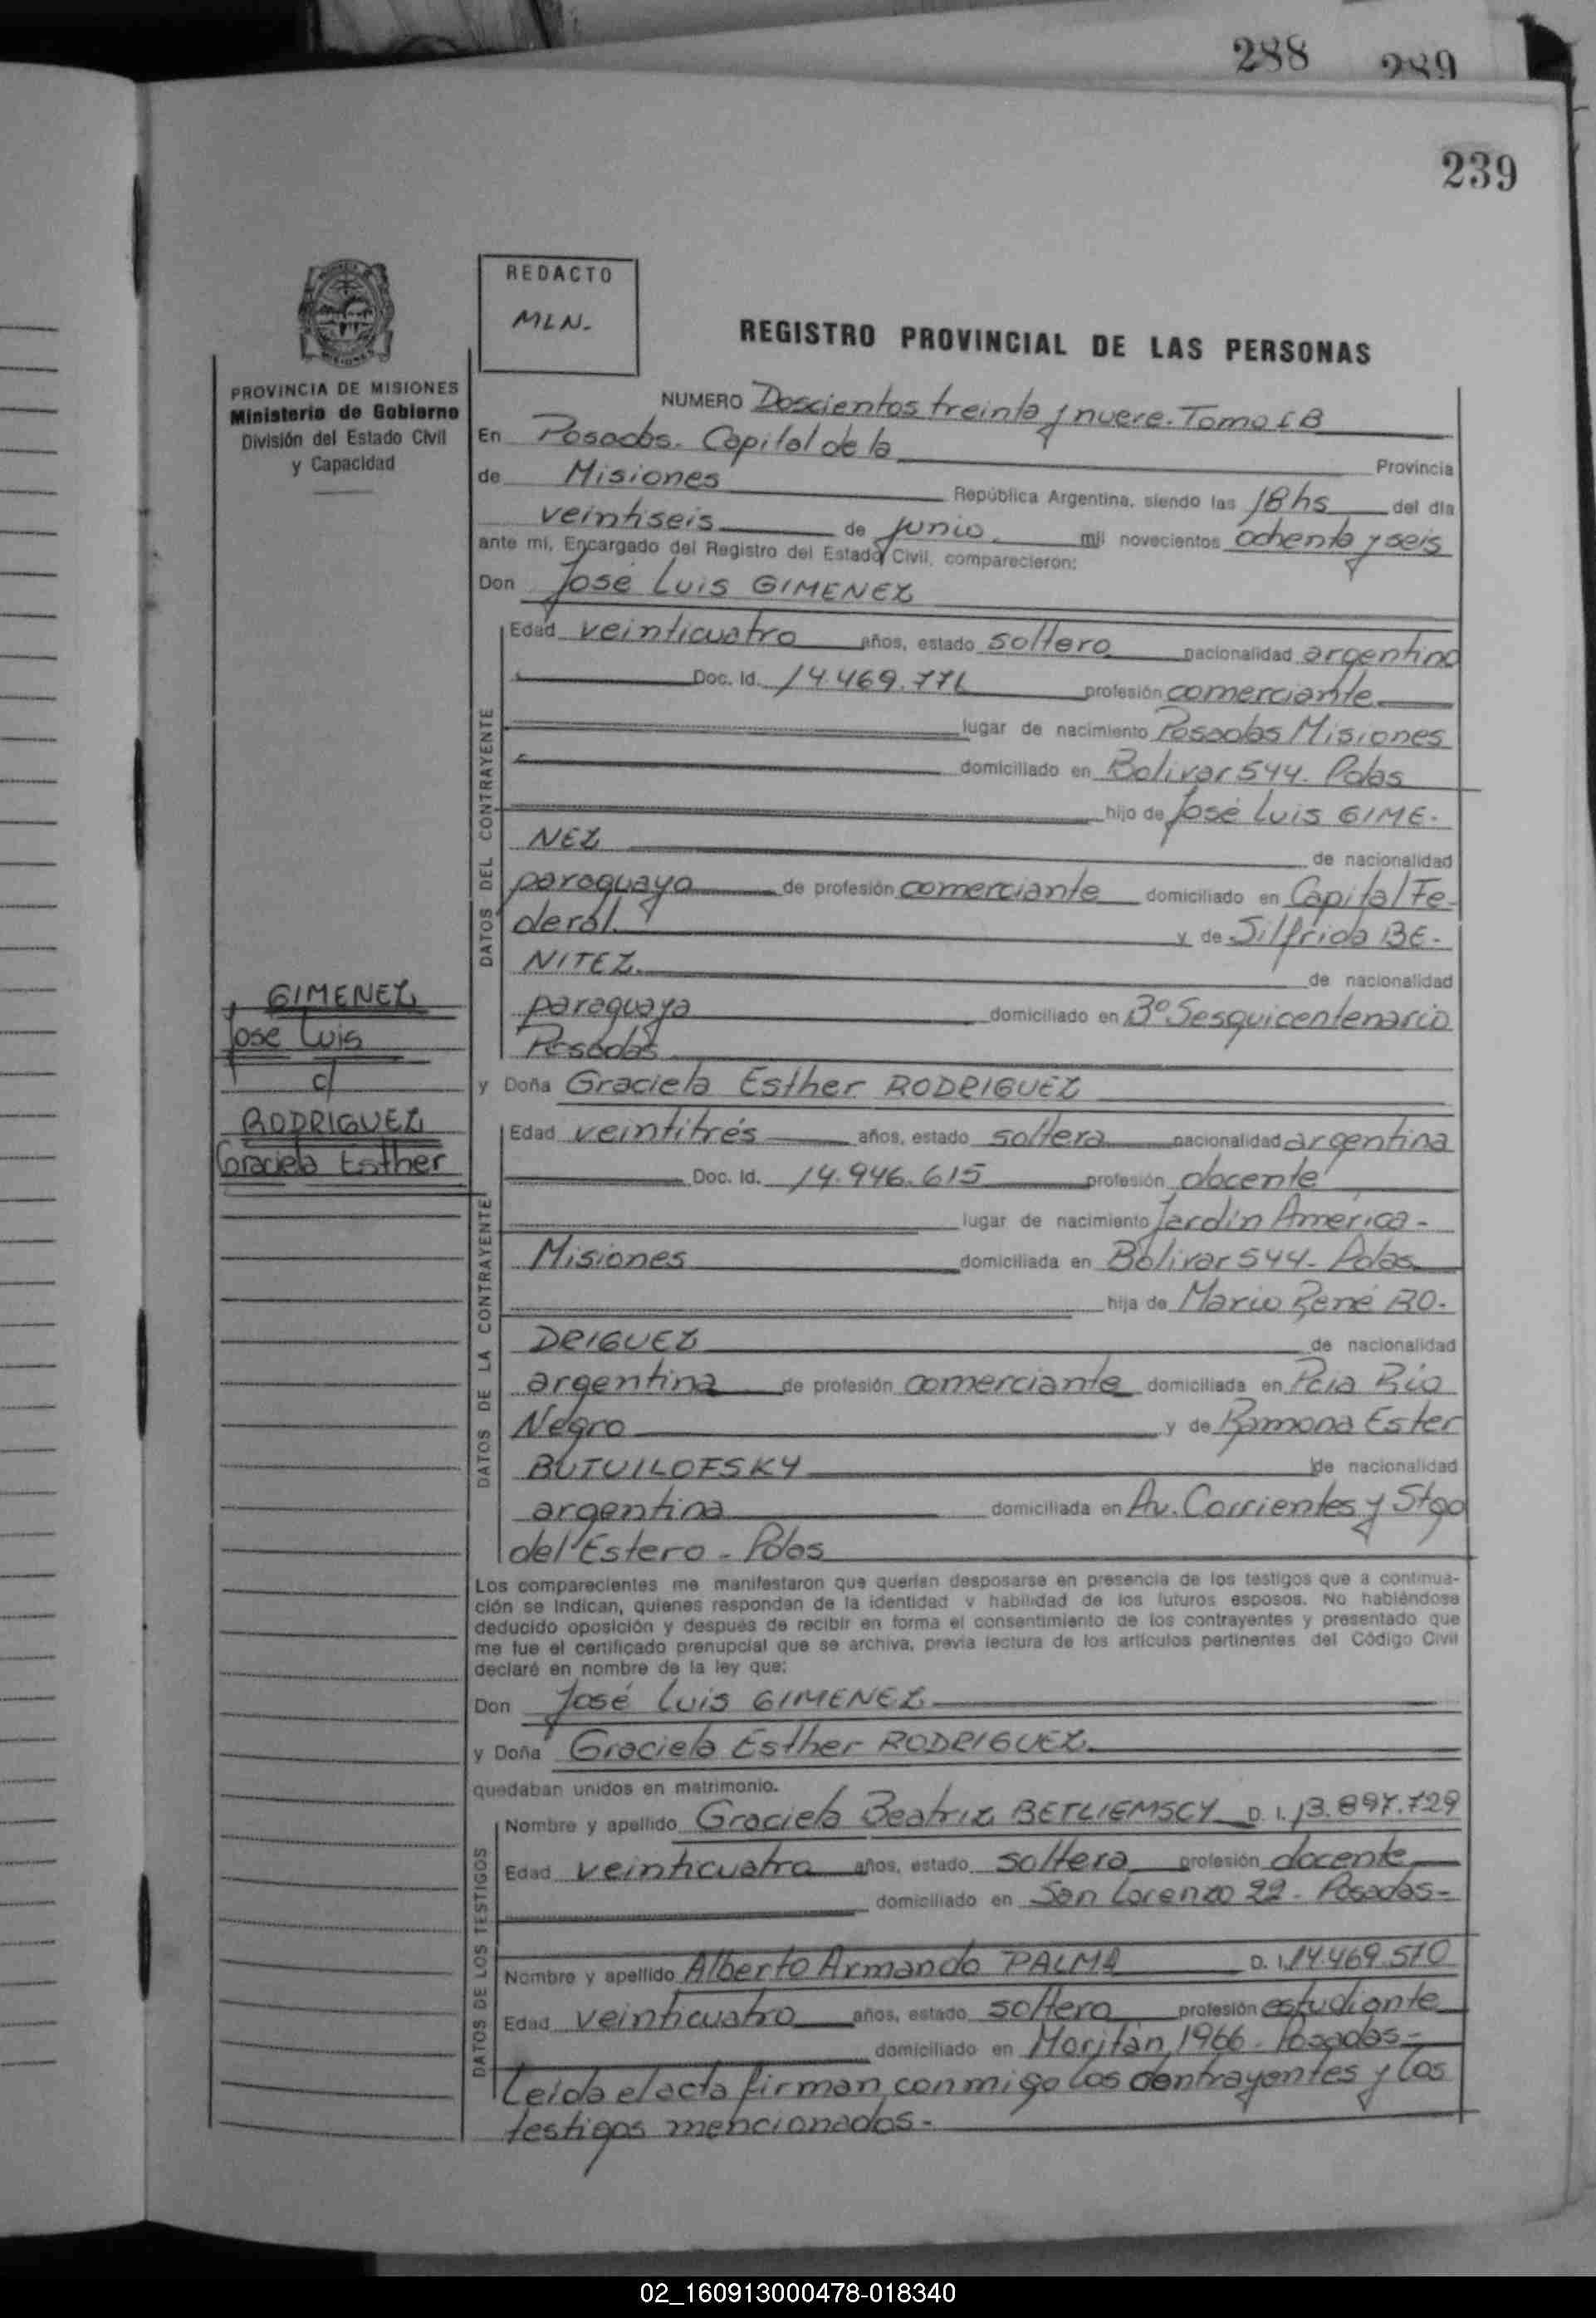 288 289
239
REDACTO
MLN.
REGISTRO PROVINCIAL DE LAS PERSONAS
PROVINCIA DE MISIONES
Ministerio de Gobierno
División del Estado Civil
y Capacidad
NUMERO Doscientos treinta y nueve. Tomo
En Posadas. Capital de la Provincia
de Misiones República Argentina, siendo las 18hs del día
veintiseis de junio. mil novecientos ochenta y seis
ante mí, Encargado del Registro del Estado Civil, comparecieron:
Don José Luis GIMENEZ
Edad veinticuatro años, estado soltero nacionalidad argentina
Doc. Id. 14.469.771 profesión comerciante
lugar de nacimiento Posadas Misiones
domiciliado en Bolivar 544. Pdas
hijo de José Luis GIME-
NEZ de nacionalidad
paraguaya de profesión comerciante domiciliado en Capital Fe-
deral. y de Silfrida BE-
NITEZ. de nacionalidad
paraguaya domiciliado en Bº Sesquicentenario
Posadas
DATOS DEL CONTRAYENTE
GIMENEZ
José Luis
c/
RODRIGUEZ
Graciela Esther
y Doña Graciela Esther RODRIGUEZ
Edad veintitrés años, estado soltera nacionalidad argentina
Doc. Id. 14.946.615 profesión docente
lugar de nacimiento Jardín America -
Misiones domiciliada en Bolivar 544- Pdas
hija de Mario René RO-
DRIGUEZ de nacionalidad
argentina de profesión comerciante domiciliada en Pcia Río
Negro y de Ramona Ester
BUTUILOFSKY de nacionalidad
argentina domiciliada en Av. Corrientes y Stgo
del Estero - Pdas
DATOS DE LA CONTRAYENTE
Los comparecientes me manifestaron que querían desposarse en presencia de los testigos que a continua-
ción se indican, quienes responden de la identidad y habilidad de los futuros esposos. No habiéndose
deducido oposición y después de recibir en forma el consentimiento de los contrayentes y presentado que
me fue el certificado prenupcial que se archiva, previa lectura de los artículos pertinentes del Código Civil
declaré en nombre de la ley que:
Don José Luis GIMENEZ
y Doña Graciela Esther RODRIGUEZ.
quedaban unidos en matrimonio.
Nombre y apellido Graciela Beatriz BETLIEMSCY D. I. 13.897.729
Edad veinticuatro años, estado soltera profesión docente
domiciliado en San Lorenzo 22 - Posadas-
Nombre y apellido Alberto Armando PALMA D. I. 14.469.510
Edad veinticuatro años, estado soltero profesión estudiante
domiciliado en 1966 - Posadas-
DATOS DE LOS TESTIGOS
Leida el acta firman conmigo los contrayentes y los
testigos mencionados-
02_160913000478-018340